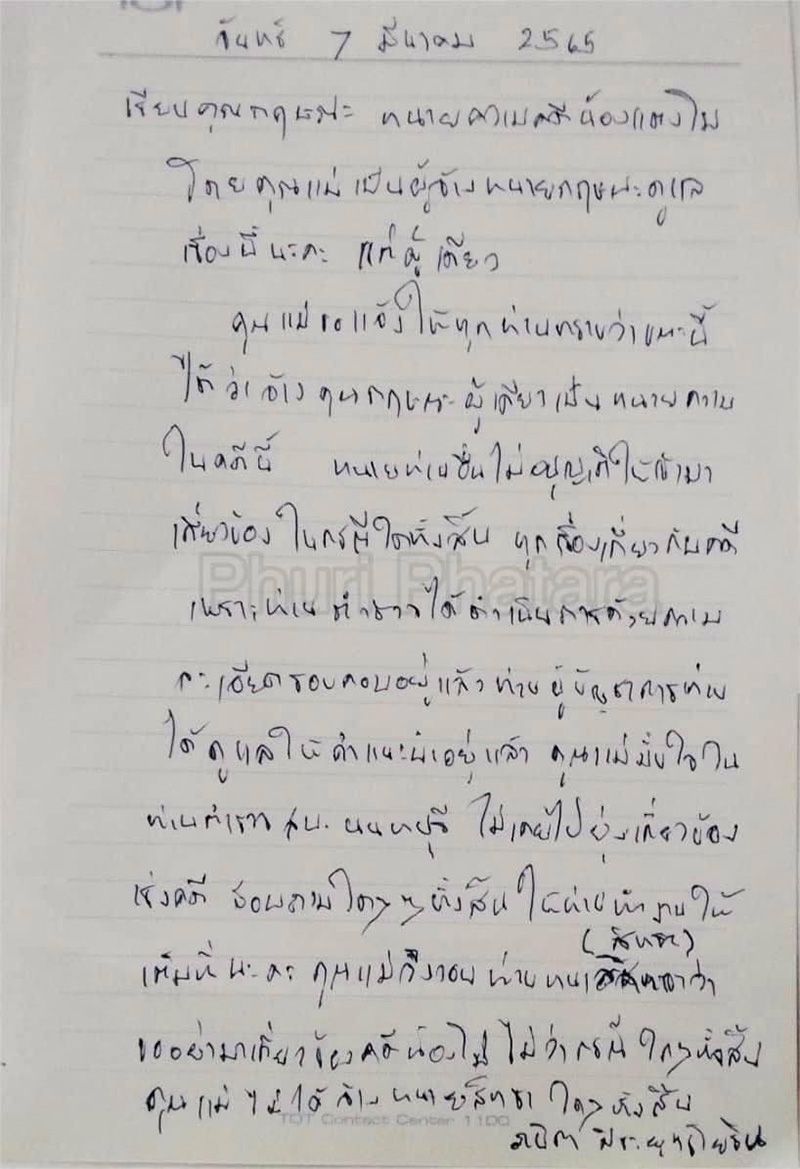 จันทร์ 7 มีนาคม 2565
เรียนคุณกฤษณะ ทนายความคดีน้องแตงโม
โดยคุณแม่เป็นผู้จ้างทนายกฤษณะดูแล
เรื่องนี้นะคะ แต่ผู้เดียว
คุณแม่ขอแจ้งให้ทุกท่านทราบว่าขณะนี้
ได้ว่าจ้างคุณกฤษณะผู้เดียวเป็นทนายความ
ในคดีนี้ ทนายท่านอื่นไม่อนุญาติให้เข้ามา
เกี่ยวข้องในกรณีใดทั้งสิ้น ทุกเรื่องเกี่ยวกับคดี
Phuri Phatara
เพราะท่านตำรวจได้ดำเนินการด้วยความ
ละเอียดรอบคอบอยู่แล้ว ท่านผู้บัญชาการท่าน
ได้ดูแลให้คำแนะนำอยู่แล้ว คุณแม่มั่นใจใน
ท่านตำรวจ สภ. นนทบุรี ไม่เคยไปยุ่งเกี่ยวข้อง
เรื่องคดี สอบถามใดๆ ทั้งสิ้น ให้ท่านทำงานให้
(สิทธา)
เต็มที่นะคะ คุณแม่จึงวอนท่านทนายว่า
ขออย่ามาเกี่ยวข้องคดีน้องโม ไม่ว่ากรณีใดๆทั้งสิ้น
คุณแม่ไม่ได้จ้างทนายสิทธา ใดๆทั้งสิ้น
TOT Contact Center 1100
ภนิดา ศิระยุทธโยธิน